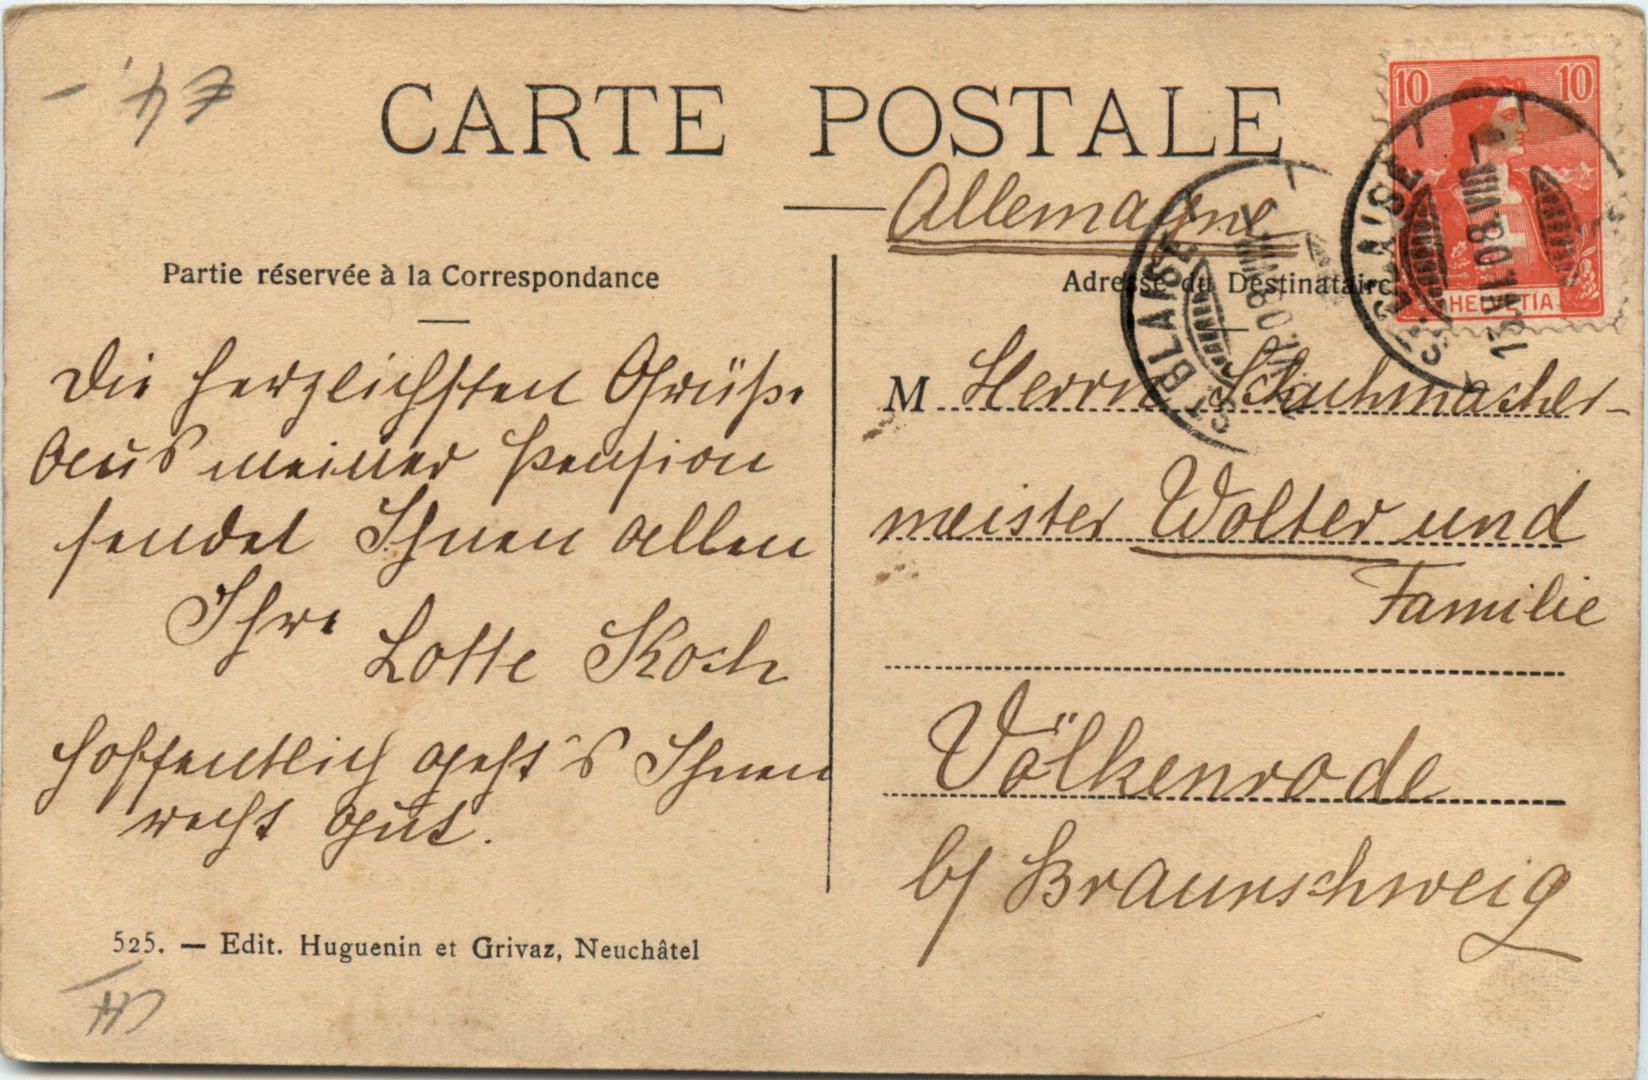 CARTE POSTALE
Allemagne
Partie réservée à la Correspondance
Die herzlichsten Grüße
aus meiner Pension
sendet Ihnen allen
Ihre
Lotte Koch
hoffentlich geht's Ihnen
recht gut.
525. — Edit. Huguenin et Grivaz, Neuchâtel
Adresse du Destinataire
M Herrn Schuhmacher-
meister Wolter und
Familie
Völkenrode
b/ Braunschweig
10 10
HELVETIA
ST BLAISE
ST BLAISE
13.VII.08.VIII